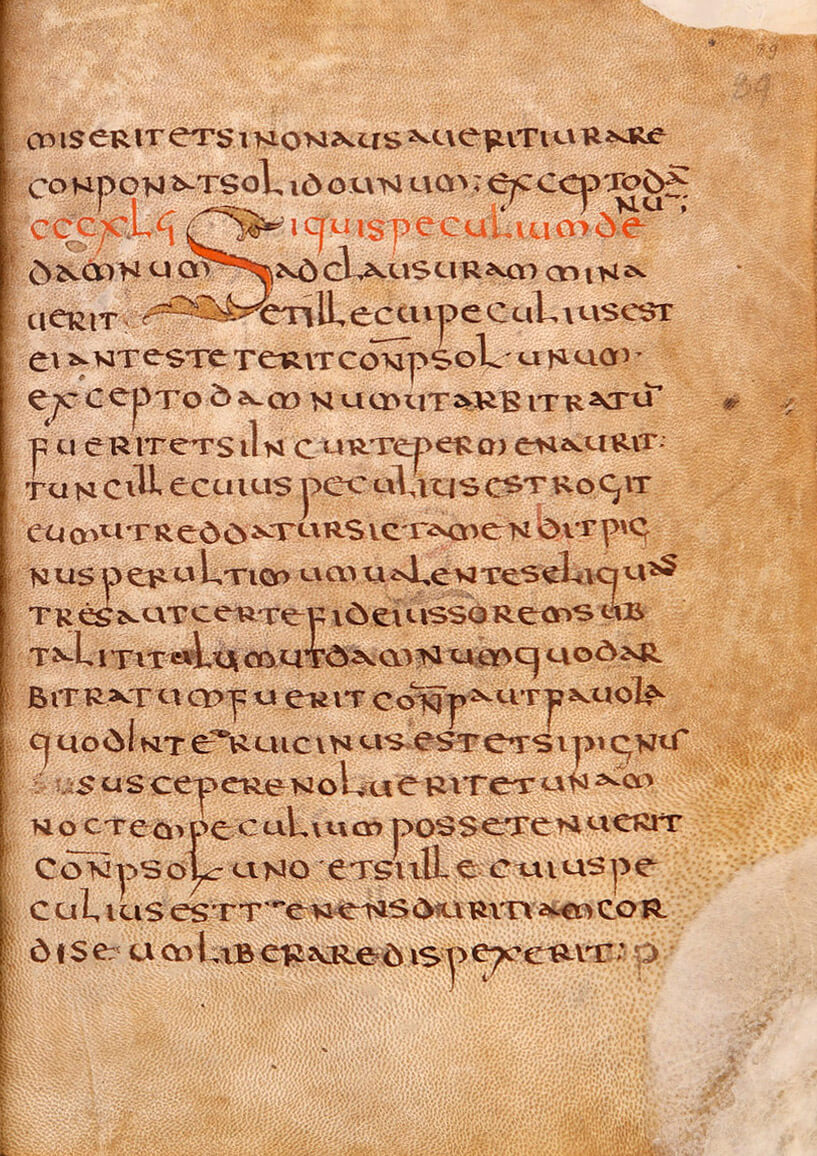 39
39
miseritetsinonausaueritiurare
conponatsolidounum; exceptodā
nū;
cccxlϛ Siquispeculiumde
damnum adclausurammina
uerit etillecuipeculiusest
eiantesteteritcon̄psol·unum·
exceptodamnumutarbitratū
fueritetsiincurtepermenaurit:
tuncillecuiuspeculiusestrogit
eumutreddatursictamenditpig
nusperultimumualenteseliquas
tresautcertefideiussoremsub
talititulumutdamnumquodar
bitratumfueritcon̄pautpauola
quodinteruicinusestetsipignus
suscepere noluerit et unam
noctempeculiumpossetenuerit
con̄psol uno etsiillecuiuspe
culiusest tenensduritiamcor
disе umliberaredispexerit: